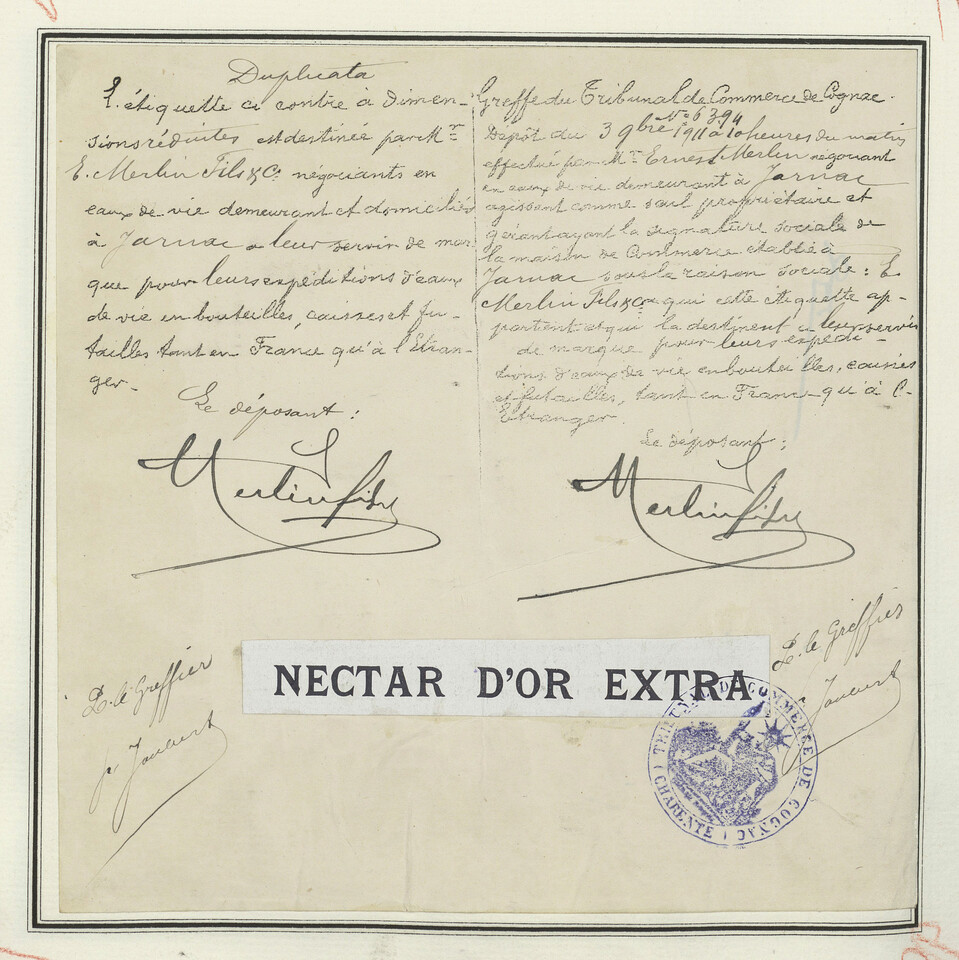 Duplicata
L'étiquette ci contre à dimen-
sions réduites est destinée par Mr
E. Merlin Fils & Ce négociants en
eaux de vie demeurant et domiciliés
à Jarnac a leur servir de mar
que pour leurs expéditions d'eaux
de vie en bouteilles, caisses et fu-
tailles tant en France qu'à l'Etran-
ger.
Le déposant :
Merlin fils
P. le Greffier
Greffe du Tribunal de Commerce de Cognac.
No 6394
Dépôt du 3 9bre 1911 à 10 heures du matin
effectué par Mr Ernest Merlin négociant
en eaux de vie demeurant à Jarnac
agissant comme seul propriétaire et
gérant ayant la signature sociale de
la maison de Commerce établie à
Jarnac sous la raison sociale : E.
Merlin Fils & Ce qui cette étiquette ap-
partient et qui la destinent à leur servir
de marque pour leurs expédi-
tions d'eaux de vie en bouteilles, caisses
et futailles, tant en France qu'à l'-
Etranger.
Le déposant :
Merlin fils
P. le Greffier
NECTAR D'OR EXTRA
TRIBUNAL DE COMMERCE DE COGNAC
(CHARENTE)